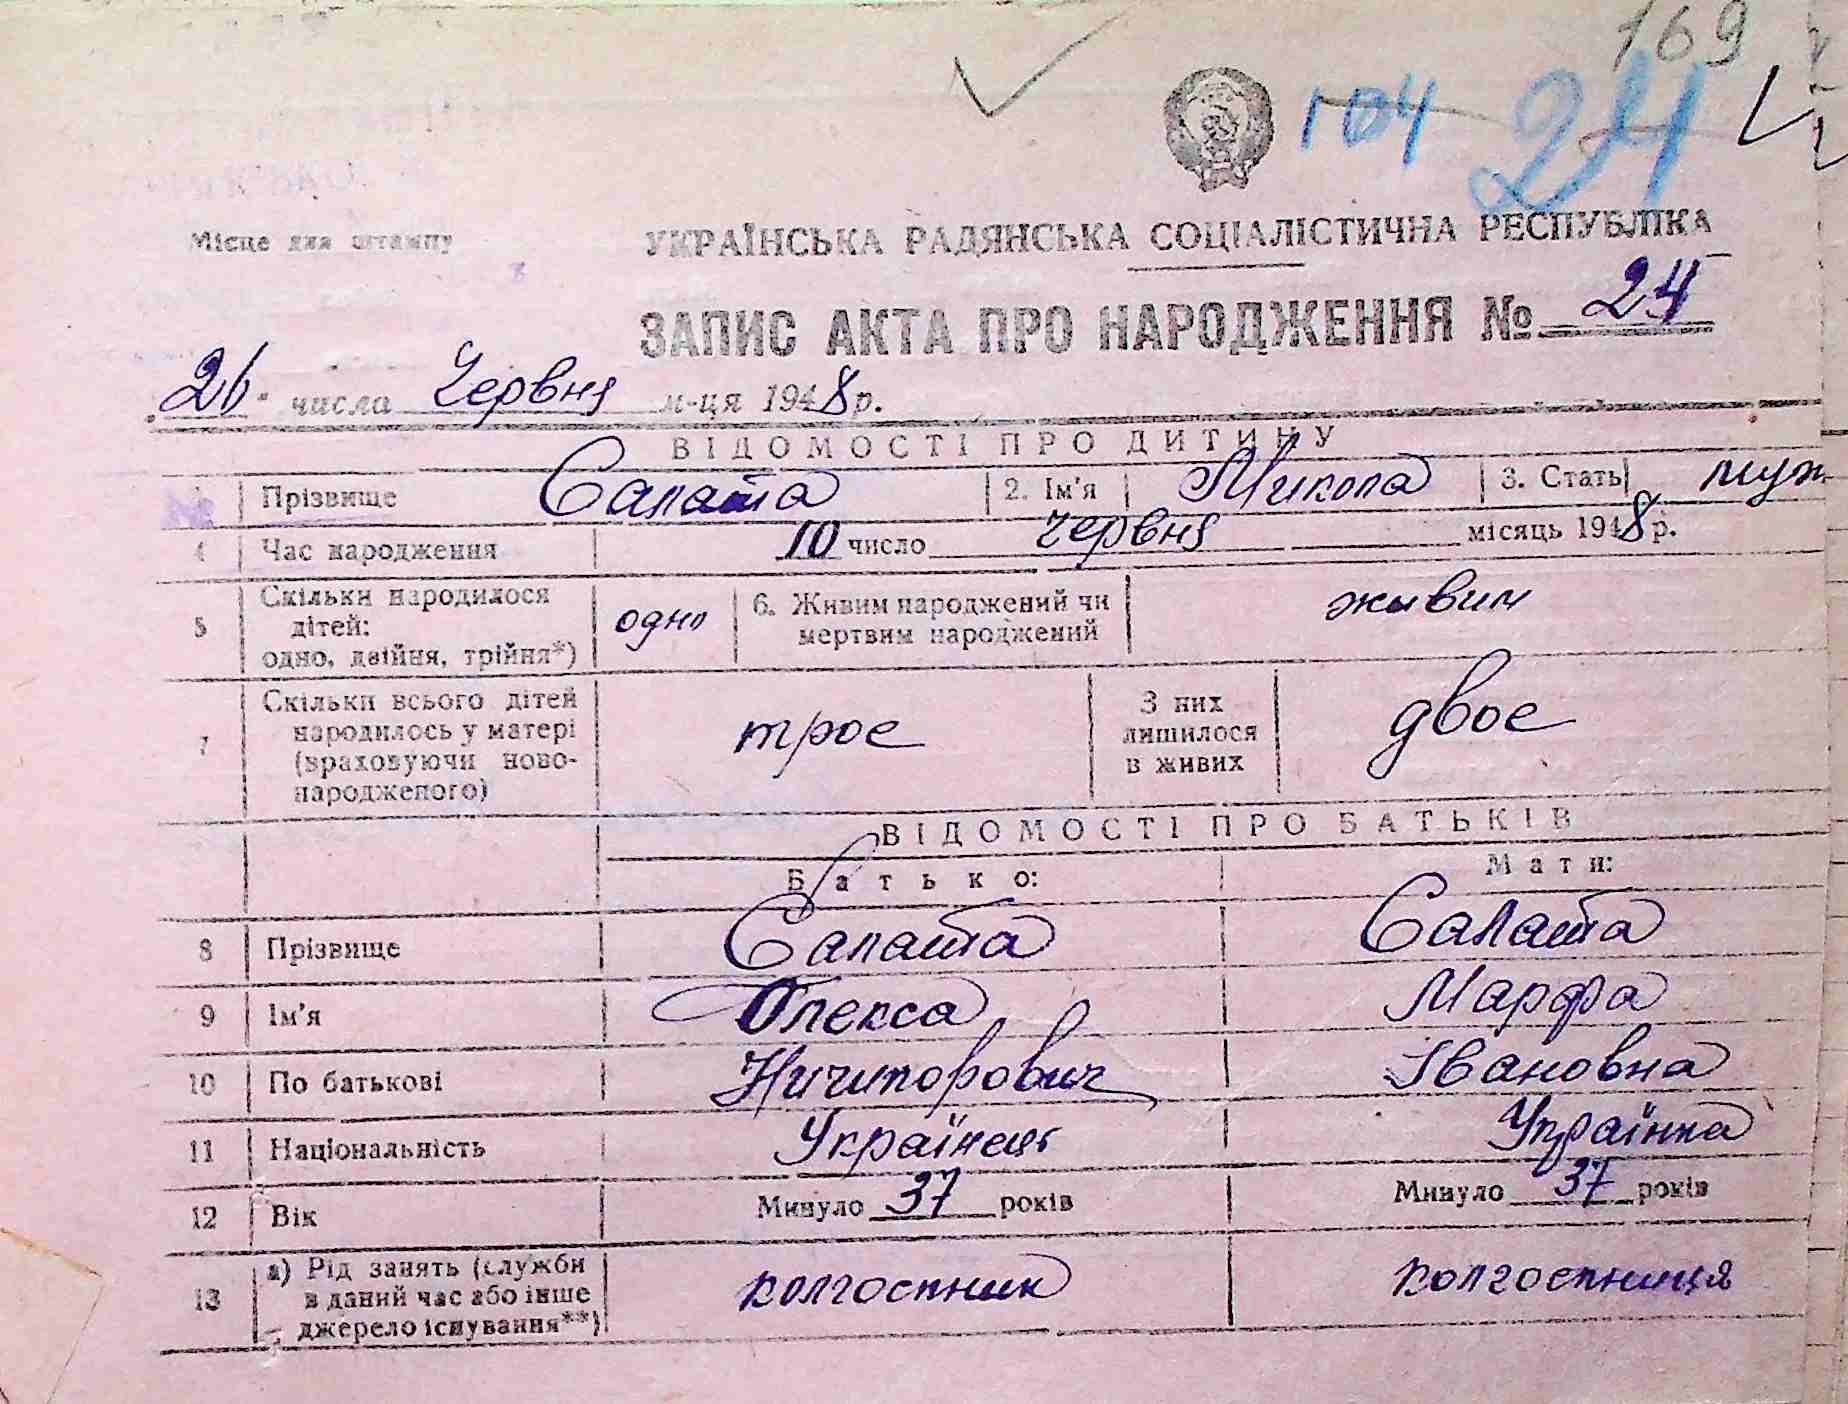 169
104 24
Місце для штампу
УКРАЇНСЬКА РАДЯНСЬКА СОЦІАЛІСТИЧНА РЕСПУБЛІКА
ЗАПИС АКТА ПРО НАРОДЖЕННЯ № 24
„26" числа Червня м-ця 1948 р.
ВІДОМОСТІ ПРО ДИТИНУ
Прізвище Салата 2. Ім'я Микола 3. Стать муж
4 Час народження 10 число червня місяць 1948 р.
5 Скільки народилося дітей: одно, двійня, трійня*) одно 6. Живим народжений чи мертвим народжений живим
7 Скільки всього дітей народилось у матері (враховуючи новонародженого) троє З них лишилося в живих двоє
ВІДОМОСТІ ПРО БАТЬКІВ
Батько: Мати:
8 Прізвище Салата Салата
9 Ім'я Олекса Марфа
10 По батькові Ничипорович Івановна
11 Національність Українець Українка
12 Вік Минуло 37 років Минуло 37 років
13 а) Рід занять (служби в даний час або інше джерело існування**) колгоспник колгоспниця